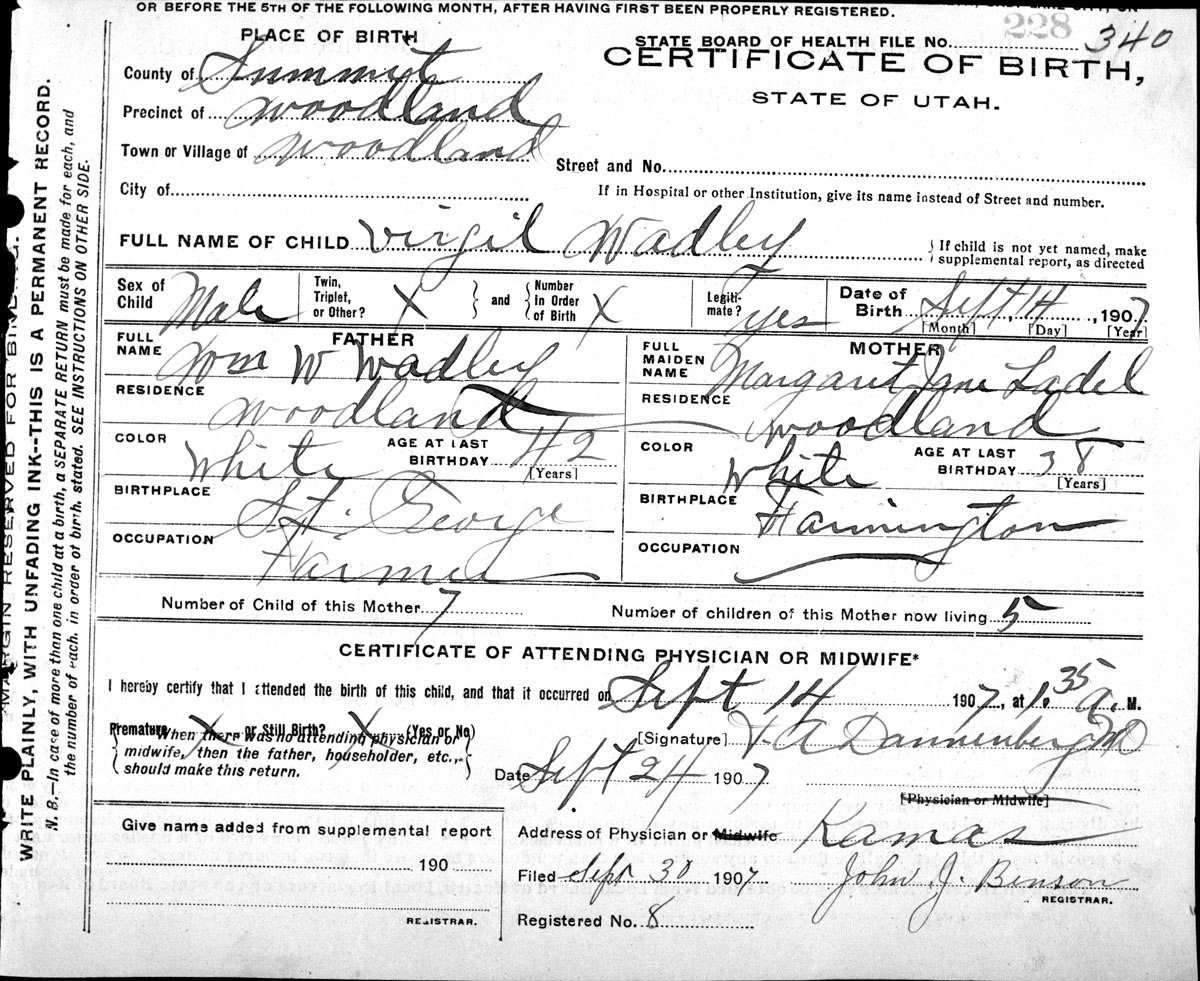 OR BEFORE THE 5TH OF THE FOLLOWING MONTH, AFTER HAVING FIRST BEEN PROPERLY REGISTERED.
228
PLACE OF BIRTH
STATE BOARD OF HEALTH FILE NO. 340
CERTIFICATE OF BIRTH,
STATE OF UTAH.
County of Summit
Precinct of Woodland
Town or Village of Woodland
Street and No.
City of
If in Hospital or other Institution, give its name instead of Street and number.
FULL NAME OF CHILD Virgil Wadley
{ If child is not yet named, make
supplemental report, as directed
Sex of Child Male
Twin, Triplet, or Other? X } and { Number In Order of Birth X
Legiti-mate? yes
Date of Birth Sept 14, 1907
[Month] [Day] [Year]
FATHER
FULL NAME Wm W Wadley
RESIDENCE Woodland
COLOR White
AGE AT LAST BIRTHDAY 42
[Years]
BIRTHPLACE St. George
OCCUPATION Farmer
MOTHER
FULL MAIDEN NAME Margaret Jane Ladel
RESIDENCE Woodland
COLOR White
AGE AT LAST BIRTHDAY 38
[Years]
BIRTHPLACE Farmington
OCCUPATION
Number of Child of this Mother 7
Number of children of this Mother now living 5
CERTIFICATE OF ATTENDING PHYSICIAN OR MIDWIFE*
I hereby certify that I attended the birth of this child, and that it occurred on Sept 14 1907, at 1.35 a. M.
Premature X or Still Birth? X (Yes or No)
{ When there was no attending physician or
midwife, then the father, householder, etc.,
should make this return. }
[Signature] F A Dannenberg MD
Date Sept 24 1907
[Physician or Midwife]
Give name added from supplemental report
190
REGISTRAR.
Address of Physician or Midwife Kamas
Filed Sept 30 1907 John J. Benson
REGISTRAR.
Registered No. 8
MARGIN RESERVED FOR BINDING.
WRITE PLAINLY, WITH UNFADING INK--THIS IS A PERMANENT RECORD.
N. B.—In case of more than one child at a birth, a SEPARATE RETURN must be made for each, and
the number of each, in order of birth, stated. SEE INSTRUCTIONS ON OTHER SIDE.